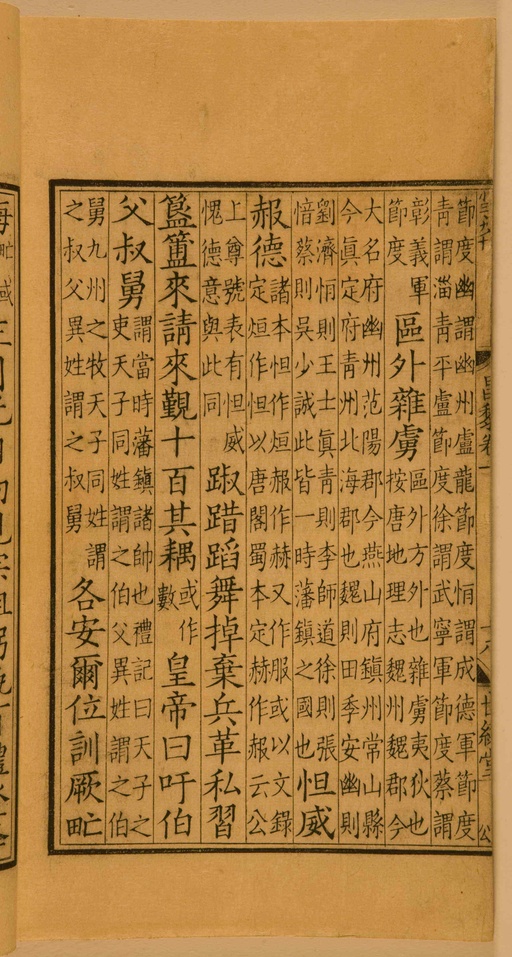 節度幽謂幽州盧龍節度恒謂成德軍節度
青謂淄青平盧節度徐謂武寧軍節度蔡謂
彰義軍節度區外雜虜區外方外也雜虜夷狄也按唐地理志魏州魏郡今
大名府幽州范陽郡今燕山府鎮州常山縣
今眞定府青州北海郡也魏則田季安幽則
劉濟恒則王士眞青則李師道徐則張愔蔡則吳少誠此皆一時藩鎮之國也怛威
赧德諸本怛作烜赧作赫又作服或以文錄定烜作怛以唐閣蜀本定赫作赧云公
上尊號表有怛威愧德意與此同踧踖蹈舞掉棄兵革私習
簋簠來請來覲十百其耦或作數皇帝曰吁伯
父叔舅謂當時藩鎮諸帥也禮記曰天子之吏天子同姓謂之伯父異姓謂之伯
舅九州之牧天子同姓謂之叔父異姓謂之叔舅各安爾位訓厥甿